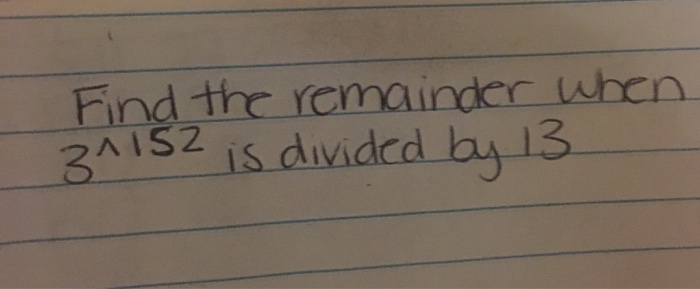 Find the remainder when
3^152 is divided by 13